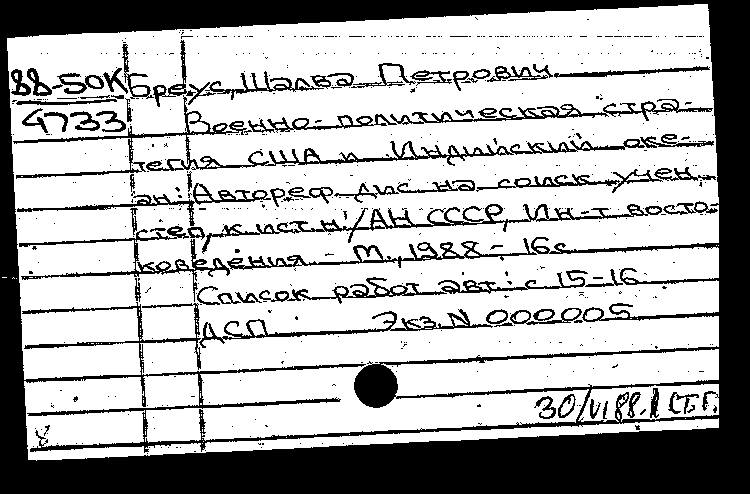 88-50К Бреус, Шалва Петрович
4733 Военно-политическая стра-
тегия США и Индийский оке-
ан: Автореф. дис. на соиск. учен.
степ. к. ист. н. /АН СССР, Ин-т восто-
коведения. - М., 1988. - 16 с.
Список работ авт.: с 15-16
ДСП Экз. N 000005
30/VI 88.
8